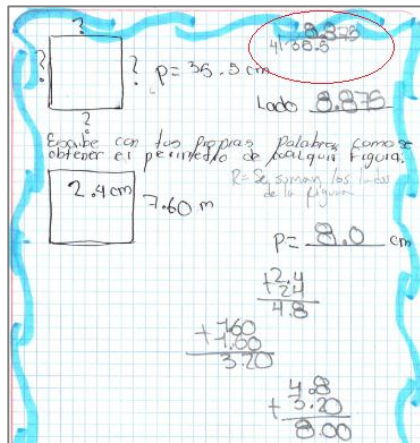 ?
8.875
4|35.5
? ? p= 35.5 cm
Lado 8.875
?
Escribe con tus propias palabras como se
obtener el perimetro de cualquier figura.
R= Se suman los lados
de la figura
2.4 cm
7.60 m
p= 8.0 cm
+2.4
24
4.8
+ 1.60
1.60
3.20
4.8
+ 3.20
8.00